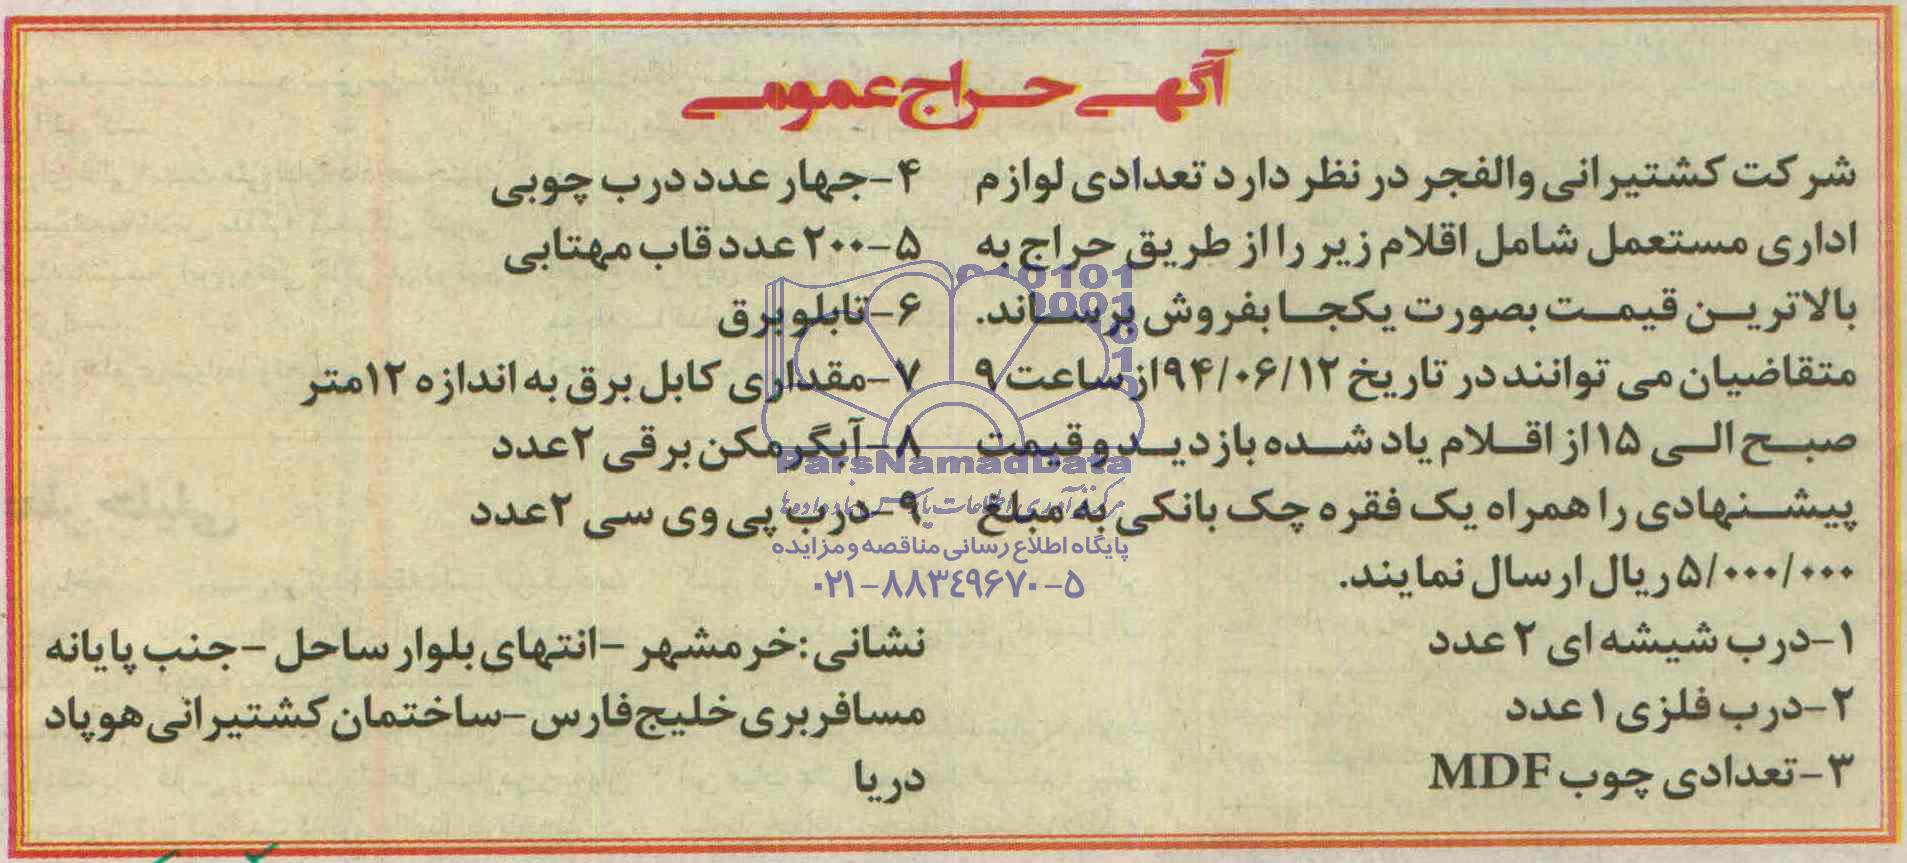 آگهی حراج عمومی
شرکت کشتیرانی والفجر در نظر دارد تعدادی لوازم
اداری مستعمل شامل اقلام زیر را از طریق حراج به
بالاترین قیمت بصورت یکجا بفروش برساند.
متقاضیان می توانند در تاریخ ۹۴/۰۶/۱۲ از ساعت ۹
صبح الی ۱۵ از اقلام یاد شده بازدید و قیمت
پیشنهادی را همراه یک فقره چک بانکی به مبلغ
۵/۰۰۰/۰۰۰ ریال ارسال نمایند.
۱-درب شیشه ای ۲ عدد
۲-درب فلزی ۱ عدد
۳-تعدادی چوب MDF
۴-چهار عدد درب چوبی
۵-۲۰۰ عدد قاب مهتابی
۶-تابلو برق
۷-مقداری کابل برق به اندازه ۱۲ متر
۸-آبگرمکن برقی ۲ عدد
۹-درب پی وی سی ۲ عدد
نشانی: خرمشهر -انتهای بلوار ساحل -جنب پایانه
مسافربری خلیج فارس -ساختمان کشتیرانی هوپاد
دریا
ParsNamadData
پایگاه اطلاع رسانی مناقصه و مزایده
۰۲۱-۸۸۳۴۹۶۷۰-۵